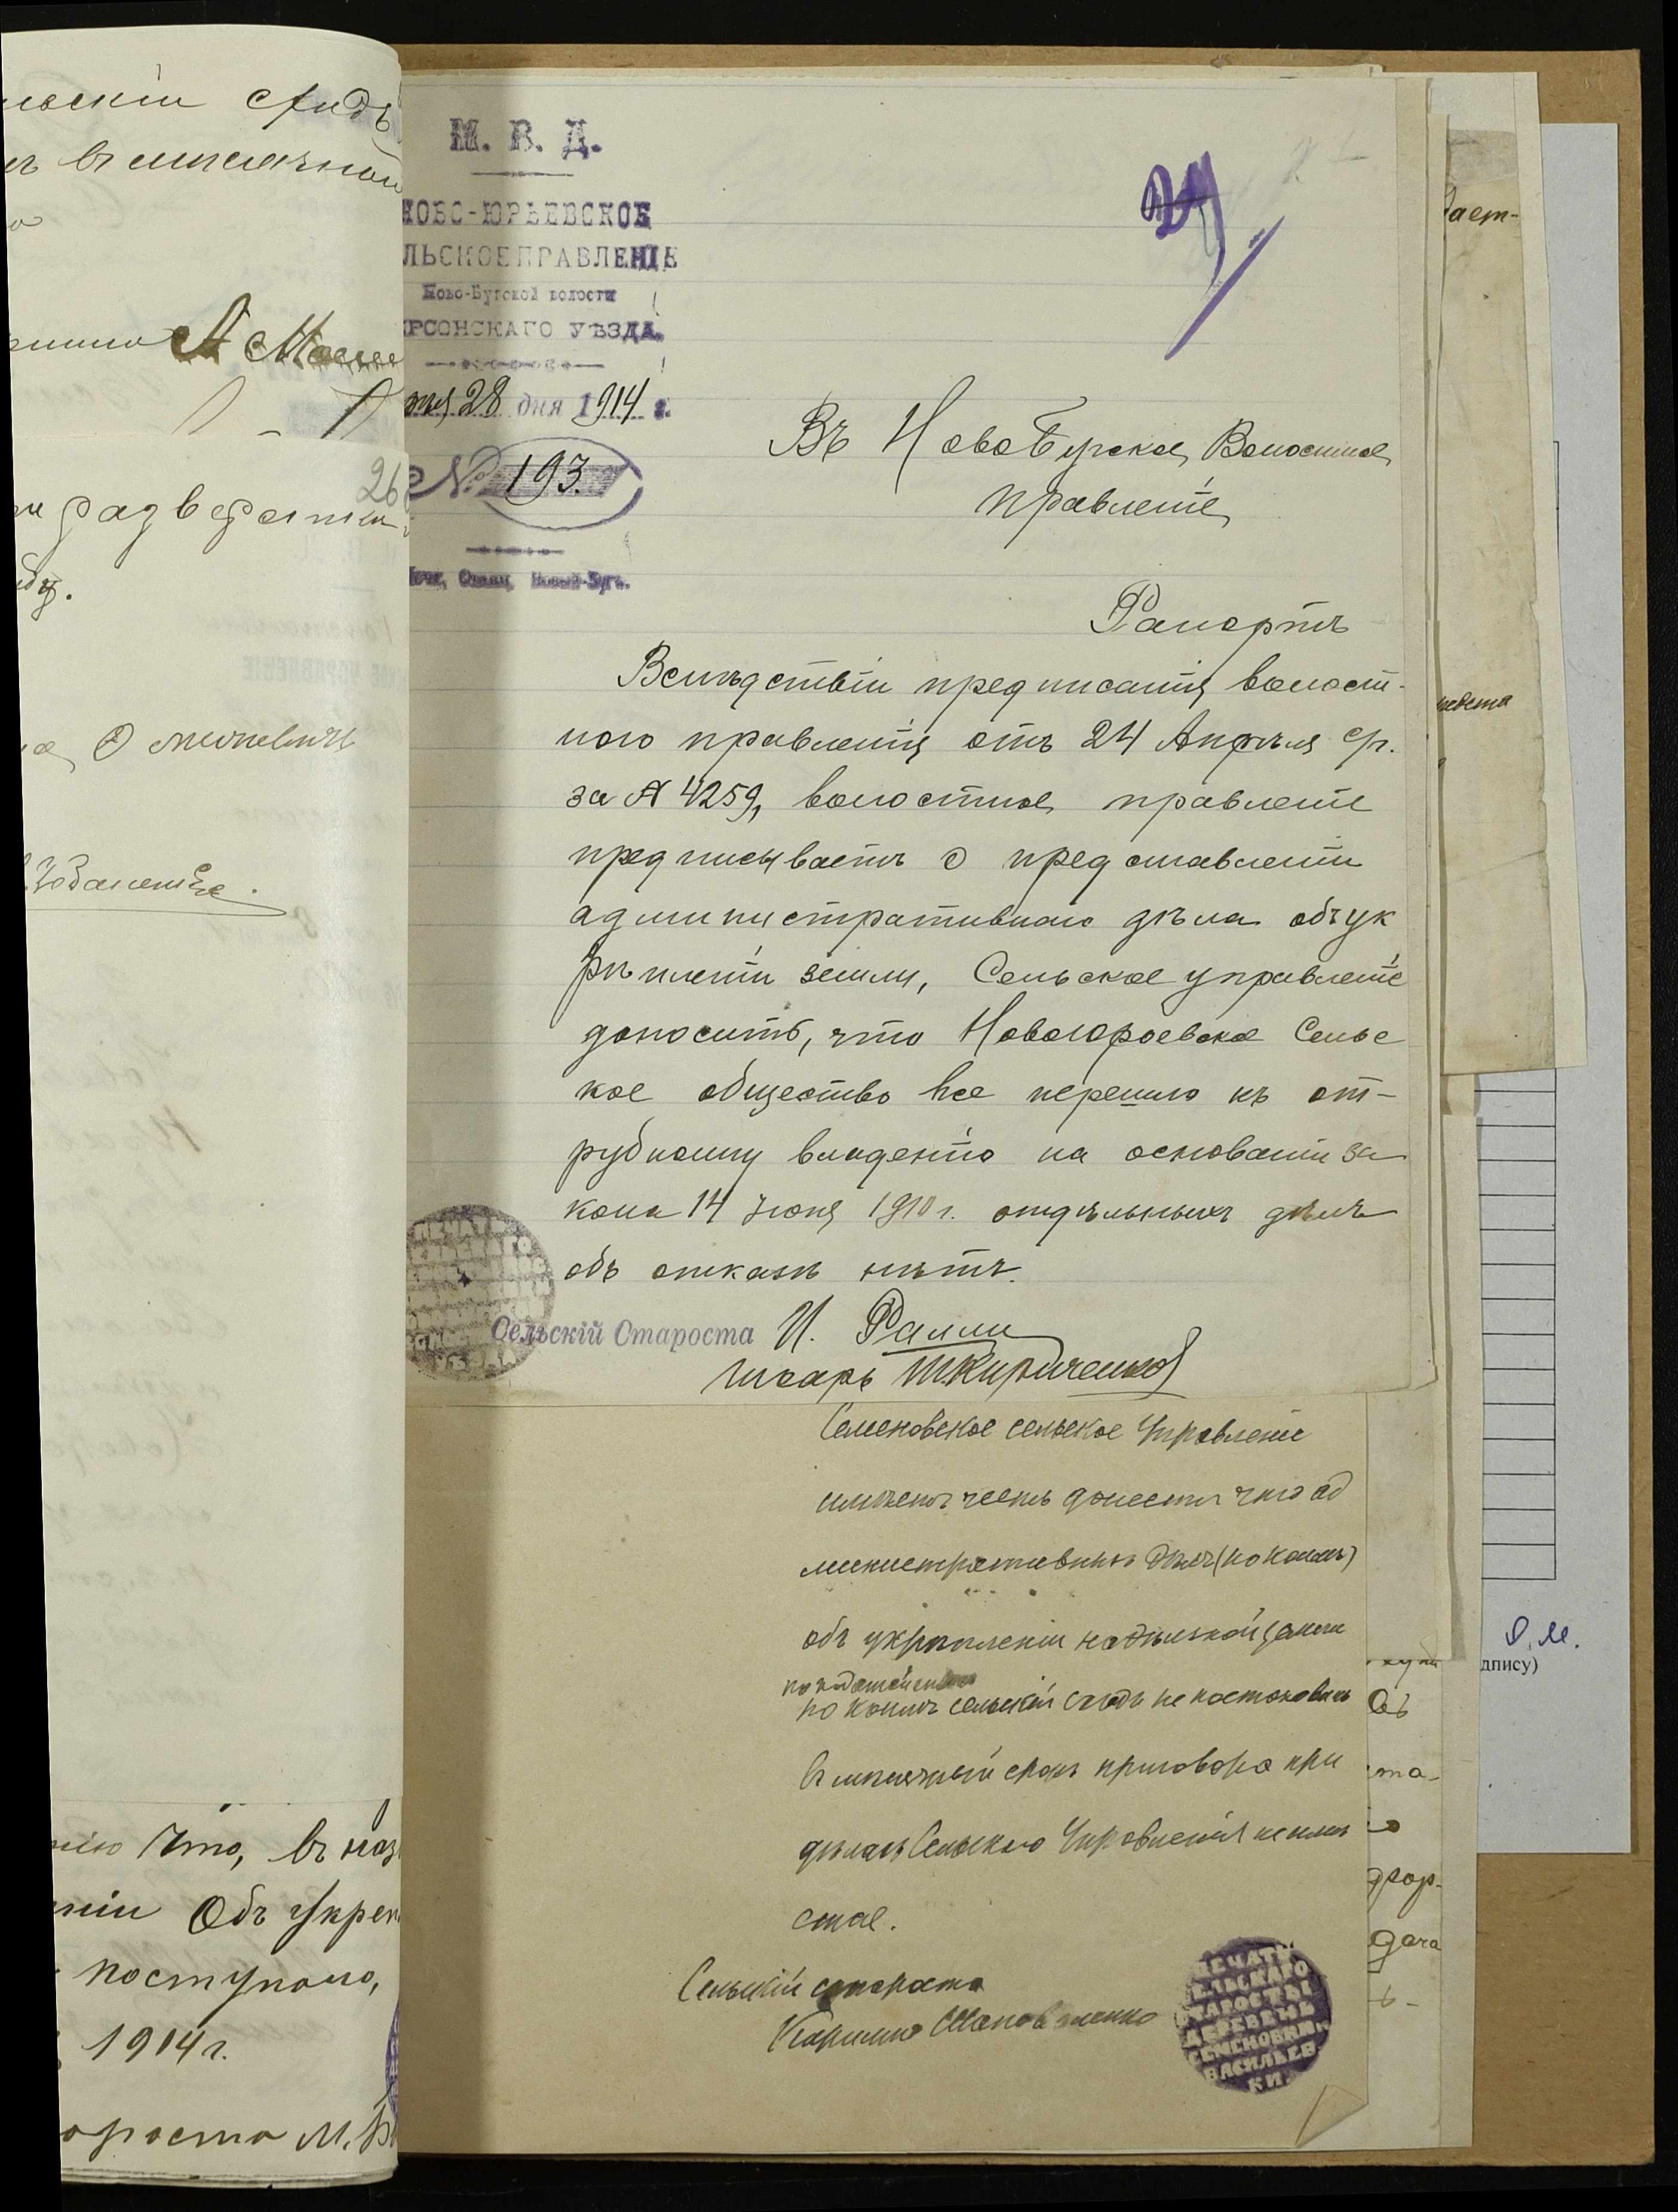 льскій сходъ
въ мѣсячной
А
26
1914 г.
М. В. Д.
НОВО-ЮРЬЕВСКОЕ
ЛЬСКОЕ ПРАВЛЕНІЕ
Ново-Бугской волости
ЕРСОНСКАГО УѢЗДА.
28 дня 1914 г.
№ 193.
Почт. Станц. Новый-Бугъ.
Въ НовоБугское Волостное
правленіе
Рапортъ
Вслѣдствіи предписанія волост-
ного правленія отъ 24 Апрѣля с/г.
за № 4259, волостное правленіе
предписываетъ о предоставленіи
административнаго дѣла объ ук
рѣпленіи земли, Сельское управленіе
доноситъ, что Новоюрьевское Сельс
кое общество все перешло къ от-
рубному владенію на основаніи за
кона 14 Іюня 1910 г. отдѣльныхъ дѣлъ
объ отказѣ нѣтъ.
Сельскій Староста И. Ралли
Писарь М. Кириченко
Семеновское сельское Управленіе
имѣетъ честь донести что ад
министративныхъ дѣлъ
объ укрѣпленіи надѣльной земли
по коимъ сельскій сходъ не постановилъ
въ мѣсячный срокъ приговора при
дѣлахъ Сельскаго Управленія не имѣ
ется.
Сельскій староста
Шаповаленко
ПЕЧАТЬ
СЕЛЬСКАГО
СТАРОСТЫ
ДЕРЕВЕНЬ
СЕМЕНОВКИ И
ВАСИЛЬЕВ
КИ
что, въ
Объ укреп
поступало,
1914 г.
ороста М.
дпису)